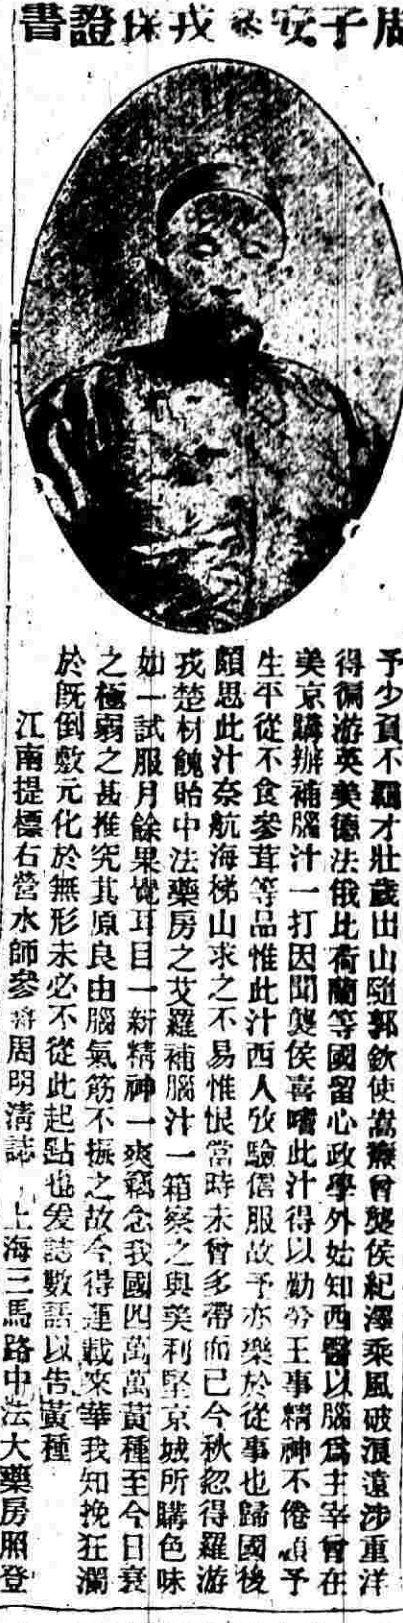 周子安參戎保證書
予少負不羈才壯歲出山隨郭欽使嵩燾曾襲侯紀澤乘風破浪遠涉重洋
得徧游英美德法俄比荷蘭等國留心政學外始知西醫以腦爲主宰曾在
美京購辦補腦汁一打因聞襲侯喜嗜此汁得以勤勞王事精神不倦顧予
生平從不食參茸等品惟此汁西人攷驗信服故予亦樂於從事也歸國後
頗思此汁奈航海梯山求之不易惟恨當時未曾多帶而已今秋忽得羅游
戎楚材餽貽中法藥房之艾羅補腦汁一箱察之與美利堅京城所購色味
如一試服月餘果覺耳目一新精神一爽竊念我國四萬萬黃種至今日衰
之極弱之甚推究其原良由腦氣筋不振之故今得運載來華我知挽狂瀾
於既倒敷元化於無形未必不從此起點也爰誌數語以告黃種
江南提標右營水師參將周明清誌 上海三馬路中法大藥房照登